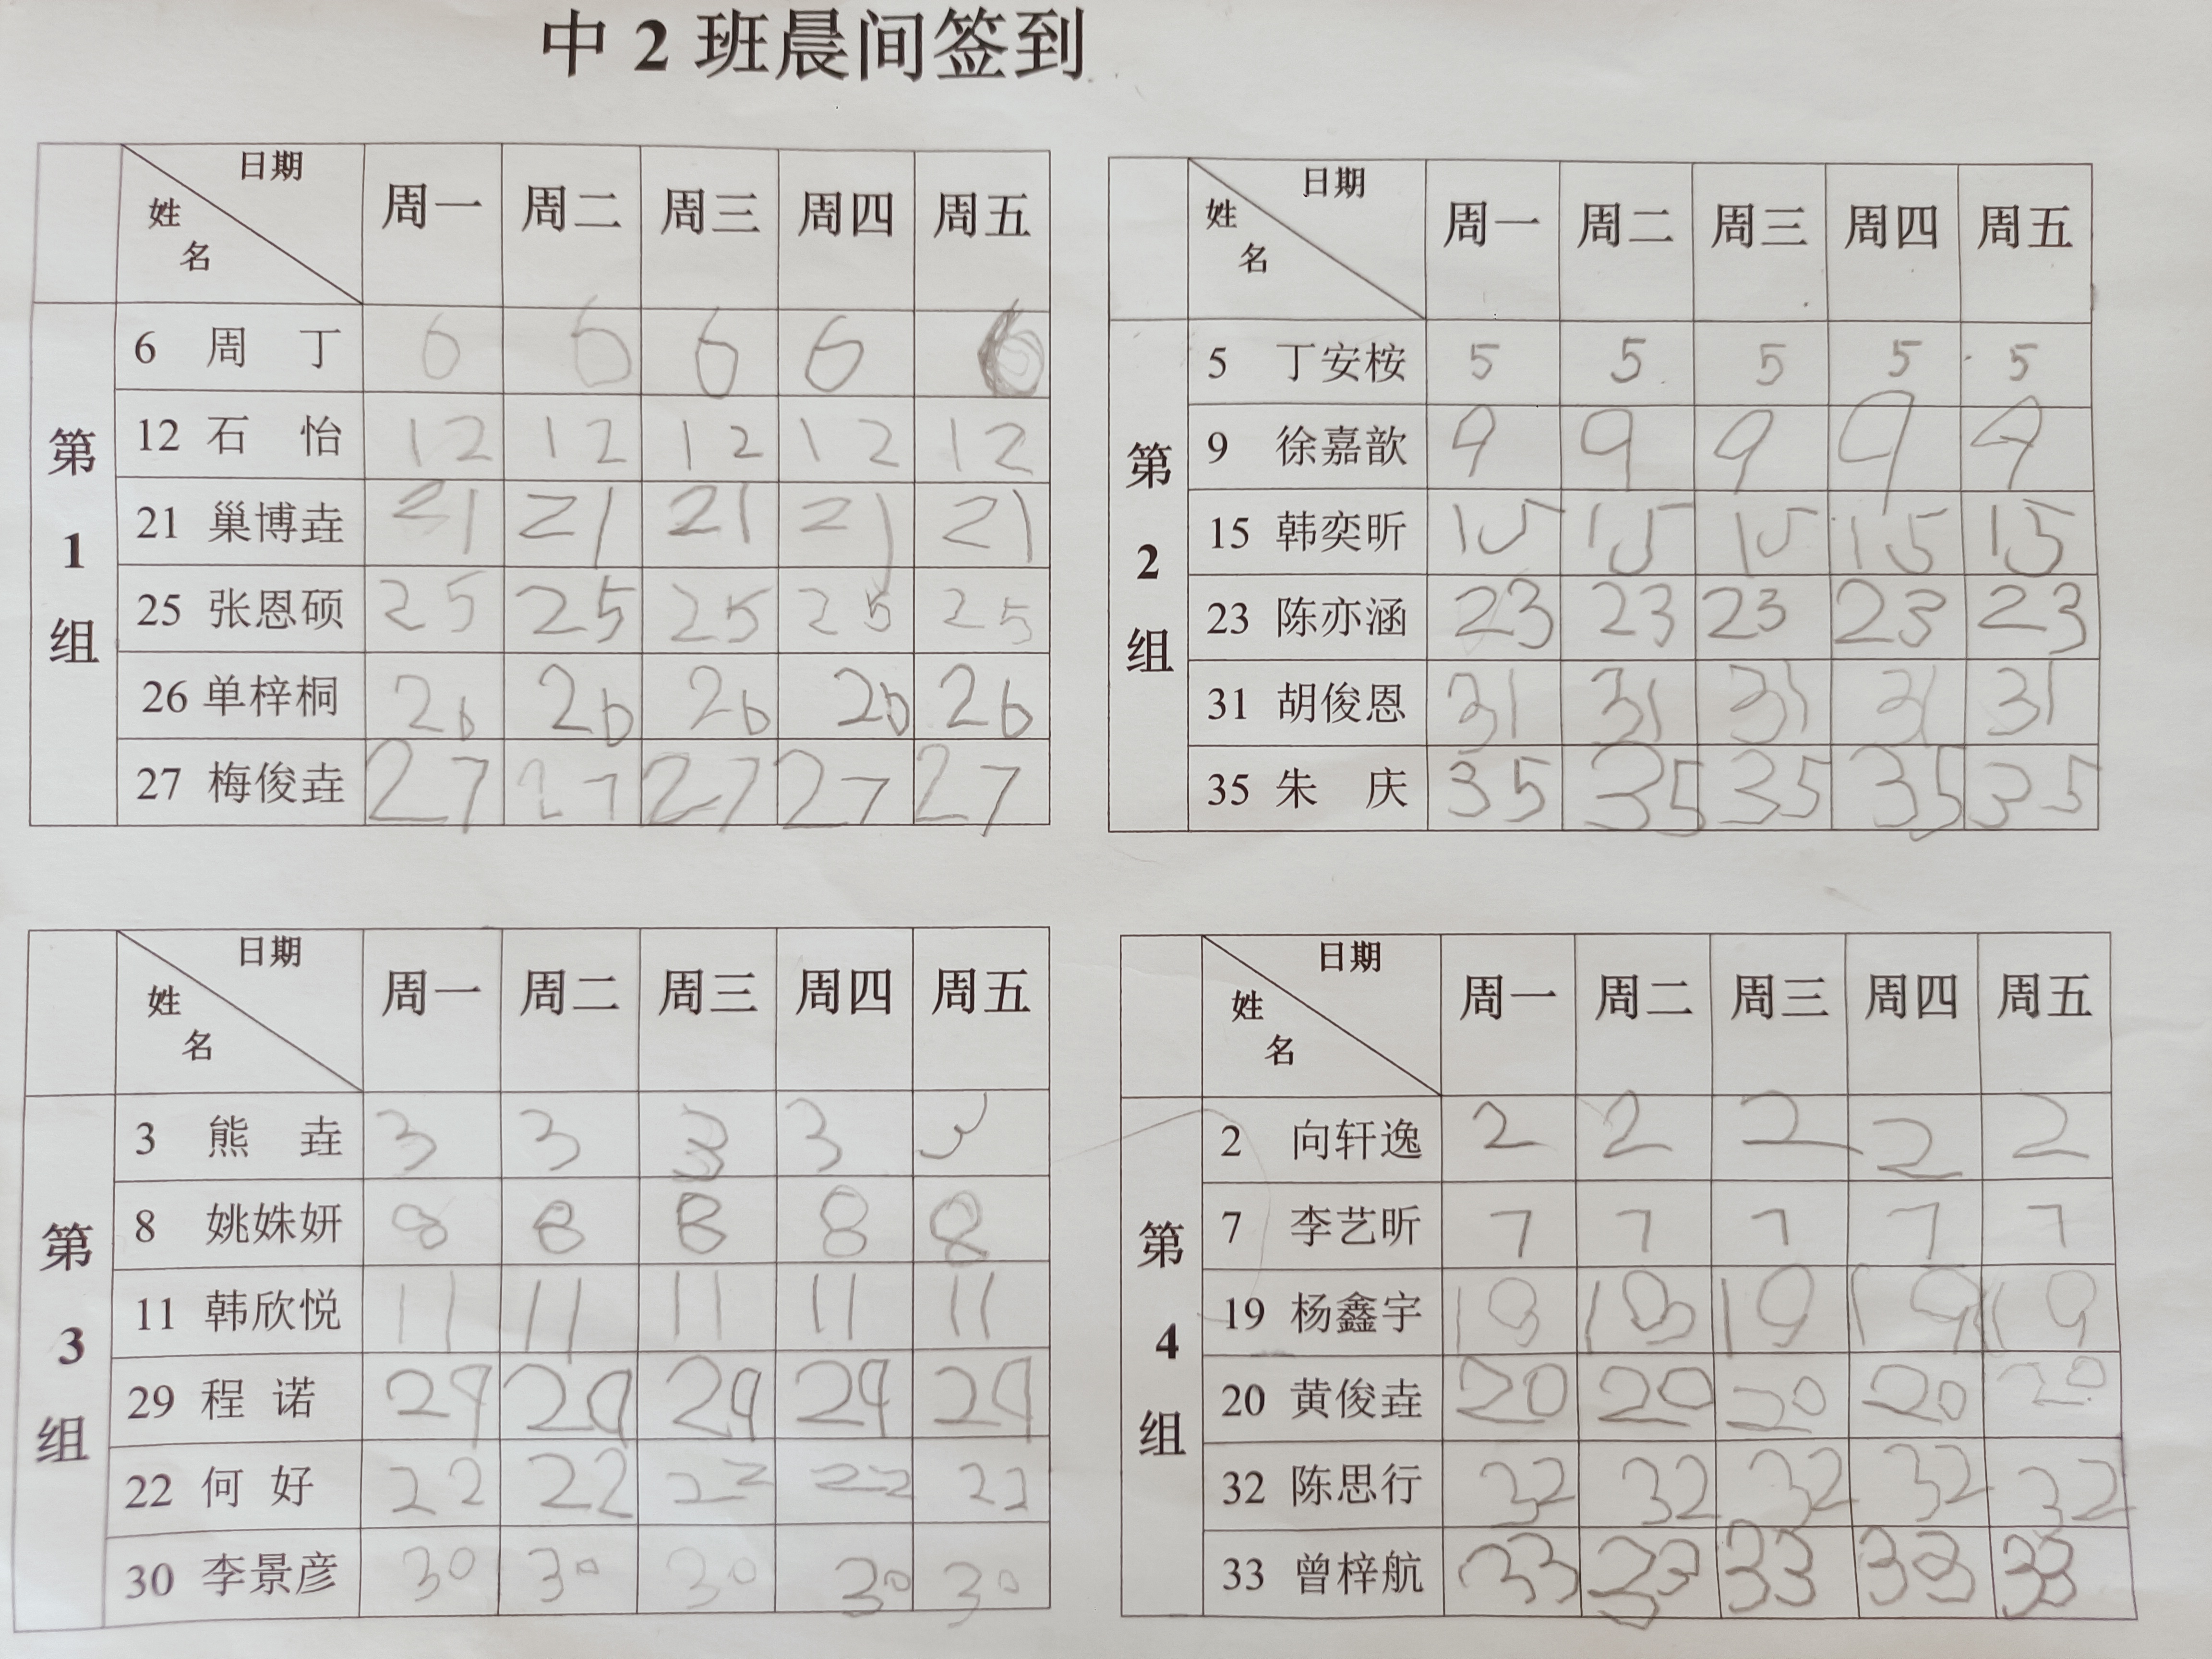 中2班晨间签到
日期 姓名 周一 周二 周三 周四 周五
第1组
6 周 丁 6 6 6 6 6
12 石 怡 12 12 12 12 12
21 巢博垚 21 21 21 21 21
25 张恩硕 25 25 25 25 25
26 单梓桐 26 26 26 26 26
27 梅俊垚 27 27 27 27 27
日期 姓名 周一 周二 周三 周四 周五
第2组
5 丁安桉 5 5 5 5 5
9 徐嘉歆 9 9 9 9 9
15 韩奕昕 15 15 15 15 15
23 陈亦涵 23 23 23 23 23
31 胡俊恩 31 31 31 31 31
35 朱 庆 35 35 35 35 35
日期 姓名 周一 周二 周三 周四 周五
第3组
3 熊 垚 3 3 3 3 3
8 姚姝妍 8 8 8 8 8
11 韩欣悦 11 11 11 11 11
29 程 诺 29 29 29 29 29
22 何 好 22 22 22 22 22
30 李景彦 30 30 30 30 30
日期 姓名 周一 周二 周三 周四 周五
第4组
2 向轩逸 2 2 2 2 2
7 李艺昕 7 7 7 7 7
19 杨鑫宇 19 19 19 19 19
20 黄俊垚 20 20 20 20 20
32 陈思行 32 32 32 32 32
33 曾梓航 33 33 33 33 33